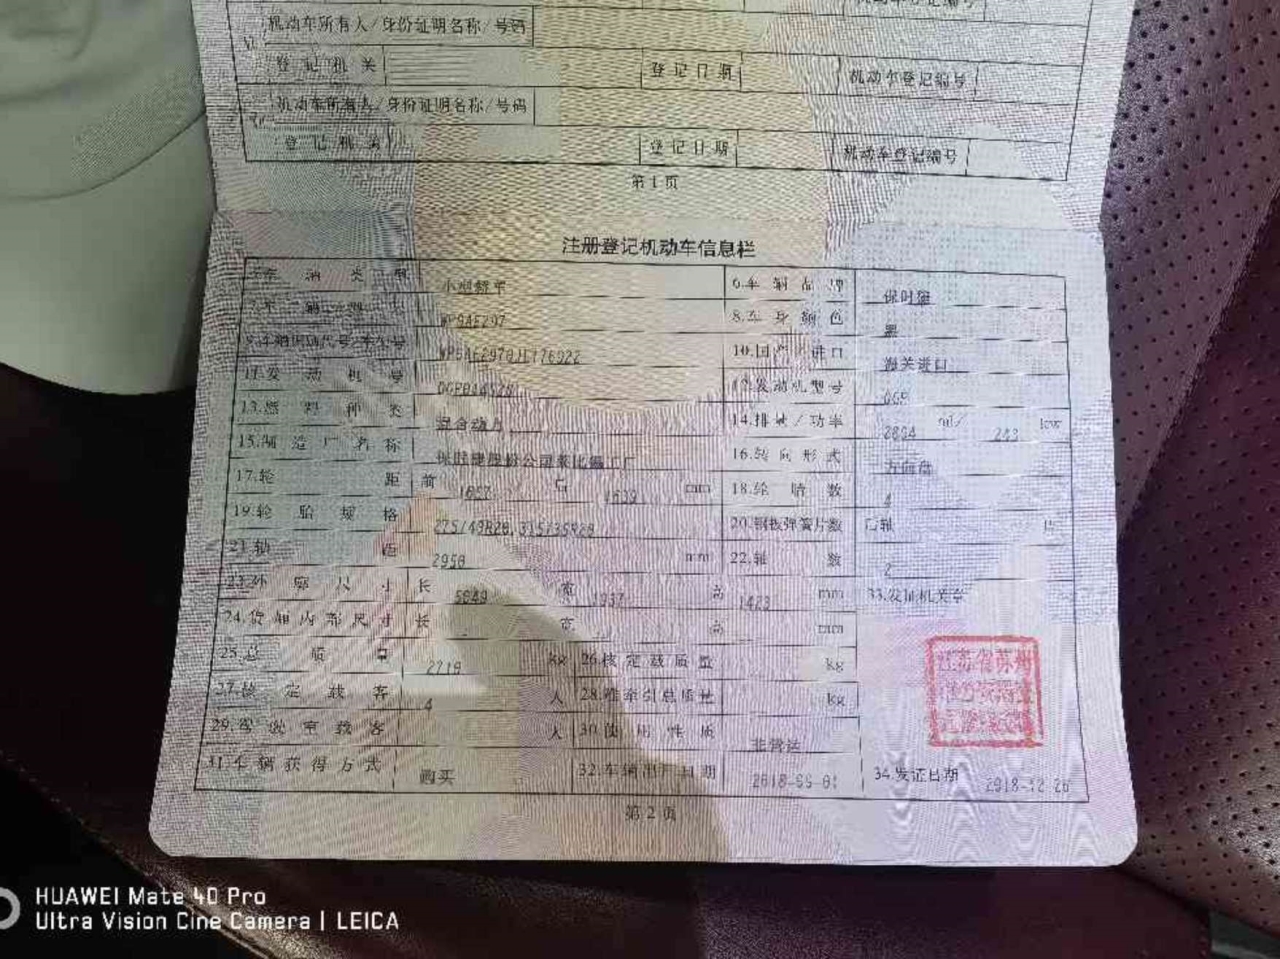 机动车登记编号
机动车所有人/身份证明名称/号码
登记机关 登记日期 机动车登记编号
机动车所有人/身份证明名称/号码
登记机关 登记日期 机动车登记编号
第1页
注册登记机动车信息栏
5.车辆类型 小型轿车 6.车辆品牌 保时捷
7.车辆型号 WP0AE297 8.车身颜色 黑
9.车辆识别代号/车架号 10.国产/进口 海关进口
11.发动机号 12.发动机型号
13.燃料种类 混合动力 14.排量/功率 2894 ml/ 243 kw
15.制造厂名称 保时捷股份公司莱比锡工厂 16.转向形式 方向盘
17.轮距 前 后 1639 mm 18.轮胎数 4
19.轮胎规格 275/40R20,315/35R20 20.钢板弹簧片数 后轴 片
21.轴距 2950 mm 22.轴数 2
23.外廓尺寸 长 5049 宽 1937 高 1423 mm 33.发证机关章
24.货厢内部尺寸 长 宽 高 mm
25.总质量 2719 kg 26.核定载质量 kg
27.核定载客 4 人 28.准牵引总质量 kg
29.驾驶室载客 人 30.使用性质 非营运
31.车辆获得方式 购买 32.车辆出厂日期 34.发证日期 2018-12-26
江苏省苏州
第2页
HUAWEI Mate 40 Pro
Ultra Vision Cine Camera | LEICA